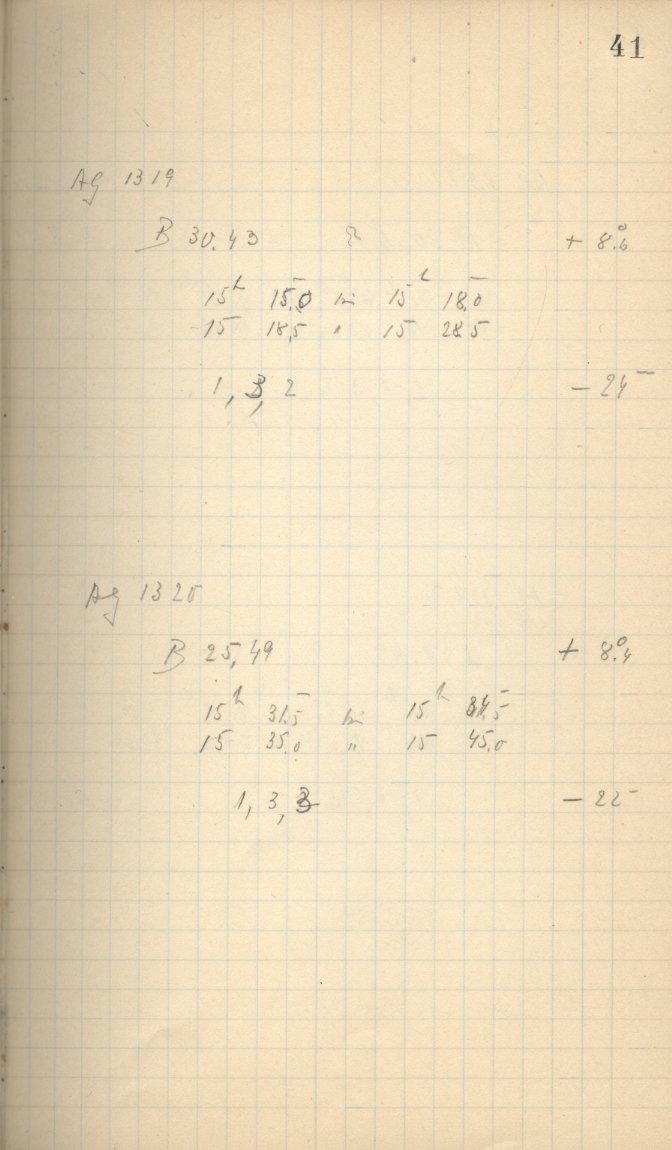 41
Ag 1319
B 30.43 + 8°.6
15h 15.0 bis 15h 18.0
15 18.5 " 15 28.5
1, 3, 2 − 24m
Ag 1320
B 25,49 + 8°.4
15h 31.5 bis 15h 34.5
15 35.0 " 15 45.0
1, 3, 3 − 22m